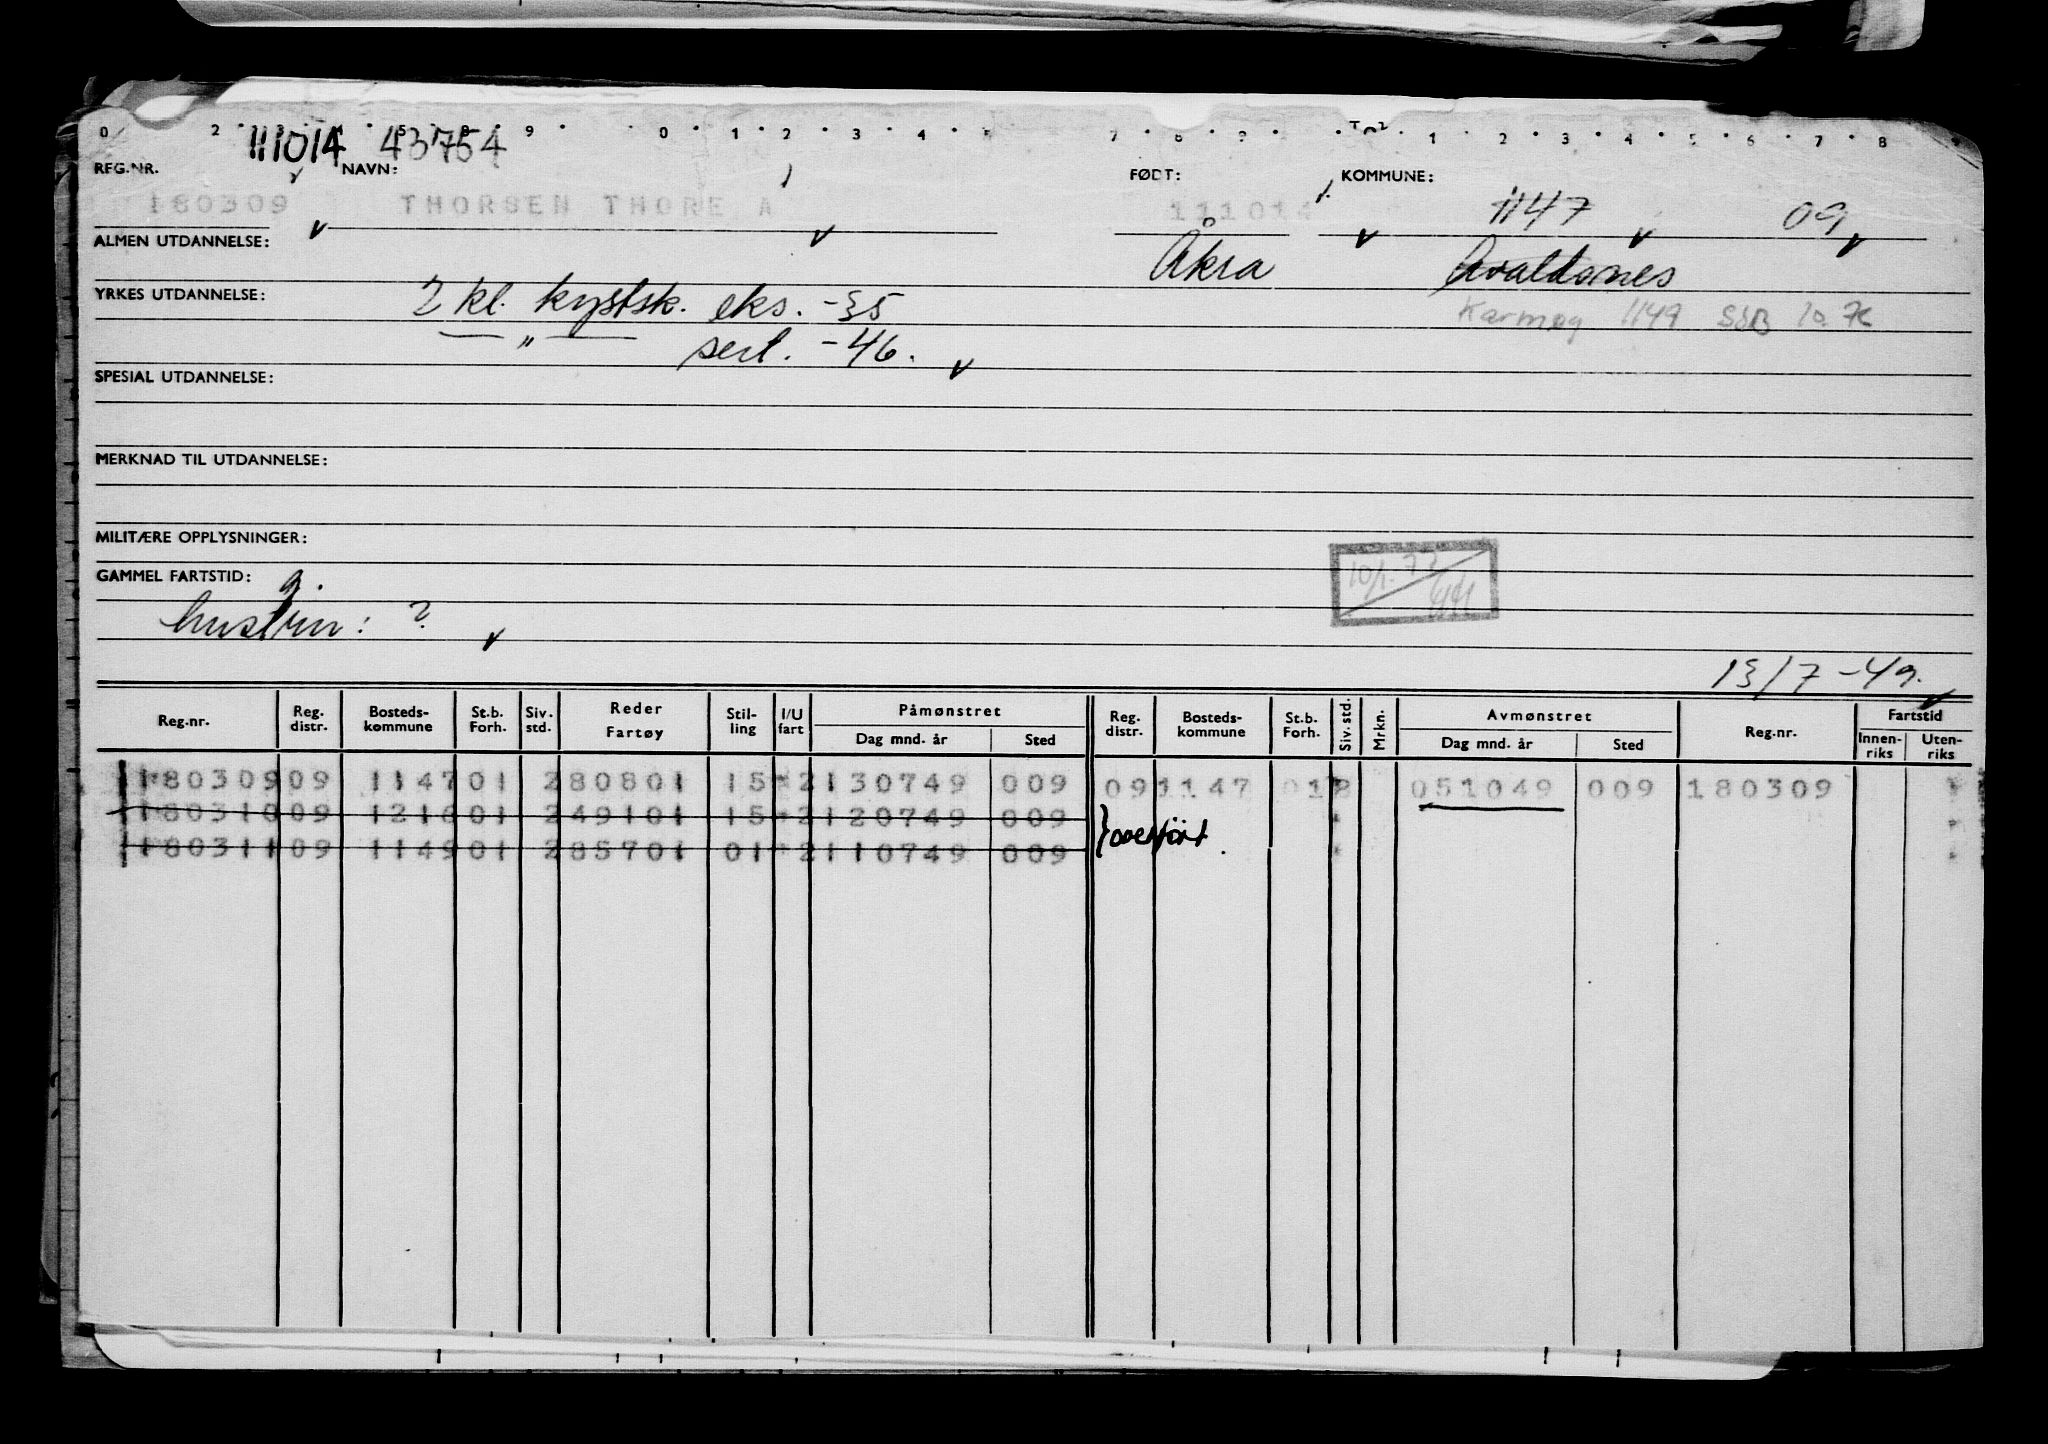 111014 43754
REG.NR. NAVN: FØDT: KOMMUNE:
180309 THORSEN THORE A 111014 1147 09
ALMEN UTDANNELSE: Åkra Avaldsnes
YRKES UTDANNELSE: 2 kl. kystsk. eks. -35 Karmøy 1149
— " — sert. -46.
SPESIAL UTDANNELSE:
MERKNAD TIL UTDANNELSE:
MILITÆRE OPPLYSNINGER:
GAMMEL FARTSTID: g.
hustru: ?
13/7-49.
Reg.nr. Reg. distr. Bosteds-kommune St.b. Forh. Siv. std. Reder Fartøy Stil-ling I/U fart Påmønstret Dag mnd. år Sted Reg. distr. Bosteds-kommune St.b. Forh. Siv. std. Mrkn. Avmønstret Dag mnd. år Sted Reg.nr. Fartstid Innen-riks Uten-riks
180309 09 1147 01 2 80801 15 2 130749 009 09 1147 01 051049 009 180309
180310 09 1216 01 2 49101 15 2 120749 009 } overført
180311 09 1149 01 2 85701 01 2 110749 009